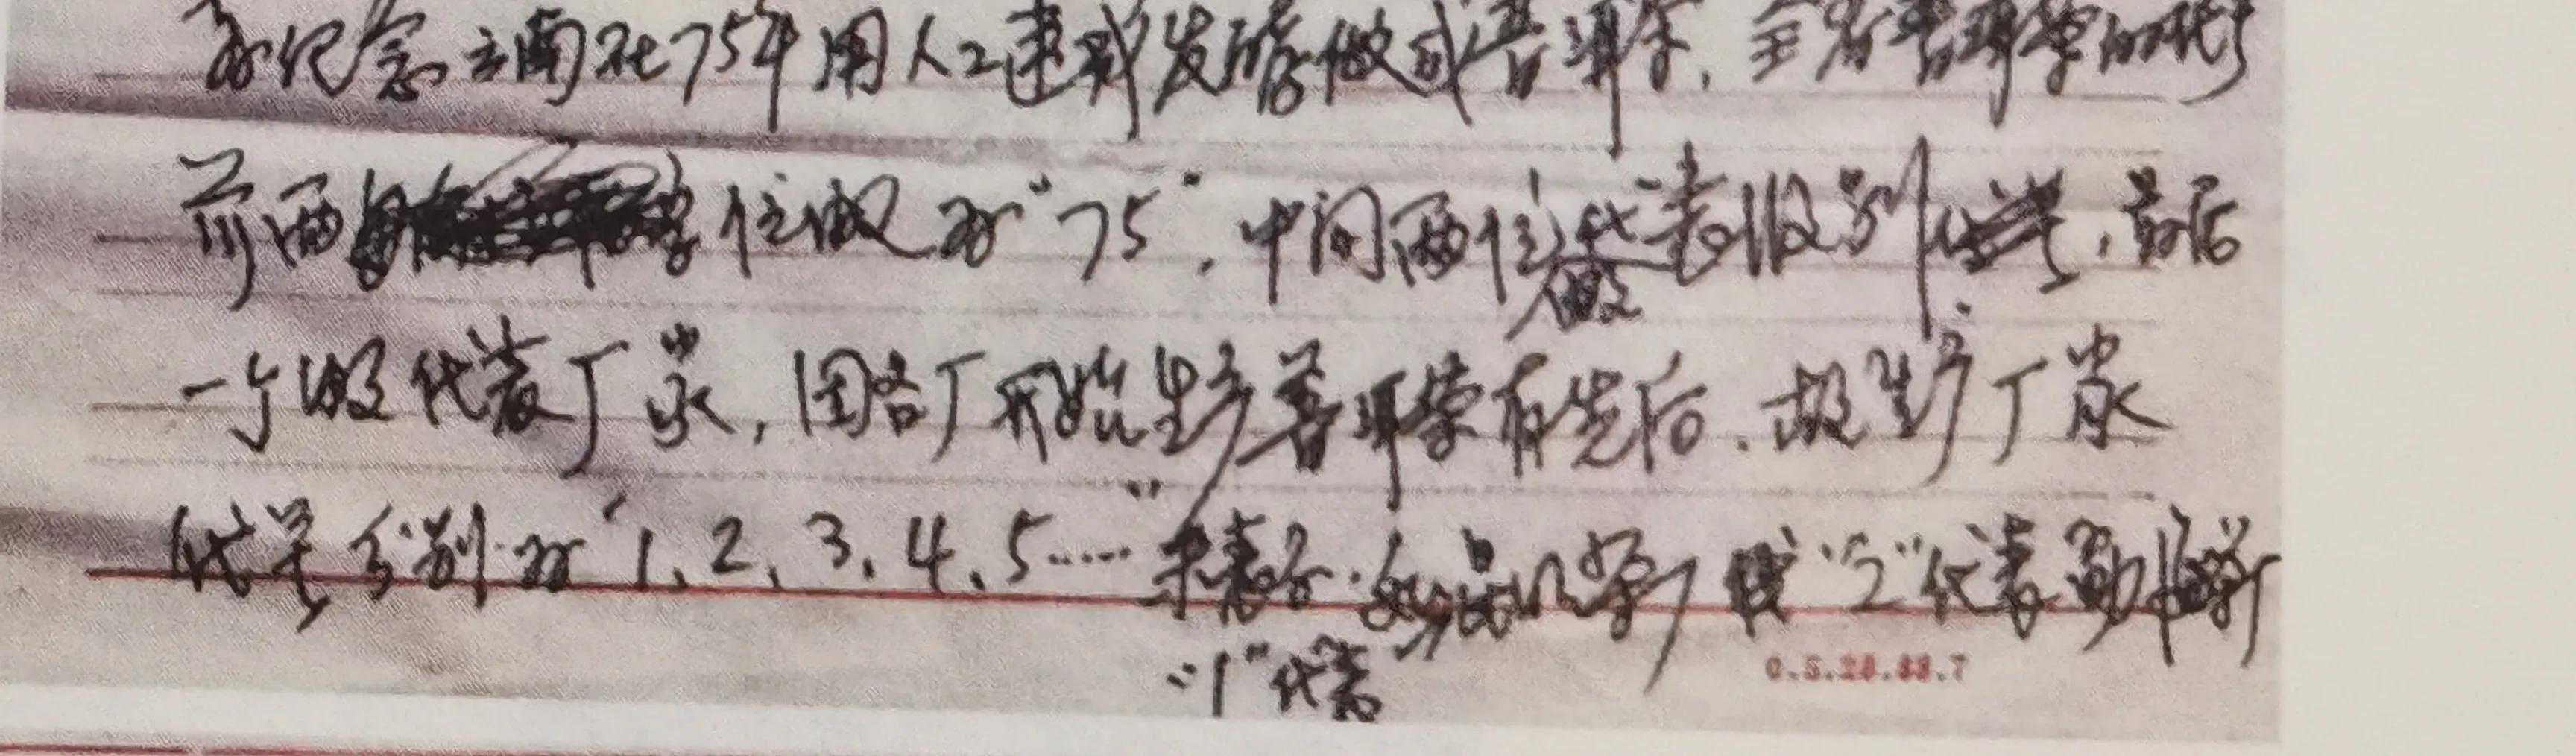 为纪念云南在75年用人工速成发酵做成普洱茶,全省普洱茶的代号
前两位做为"75",中间两位代表级别,最后
一个级代表厂家,因各厂开始生产普洱茶有先后.故生产厂家
代号分别为"1、2、3、4、5……"昆明茶厂 "2"代表勐海茶厂
"1"代表
0.5.28.88.7